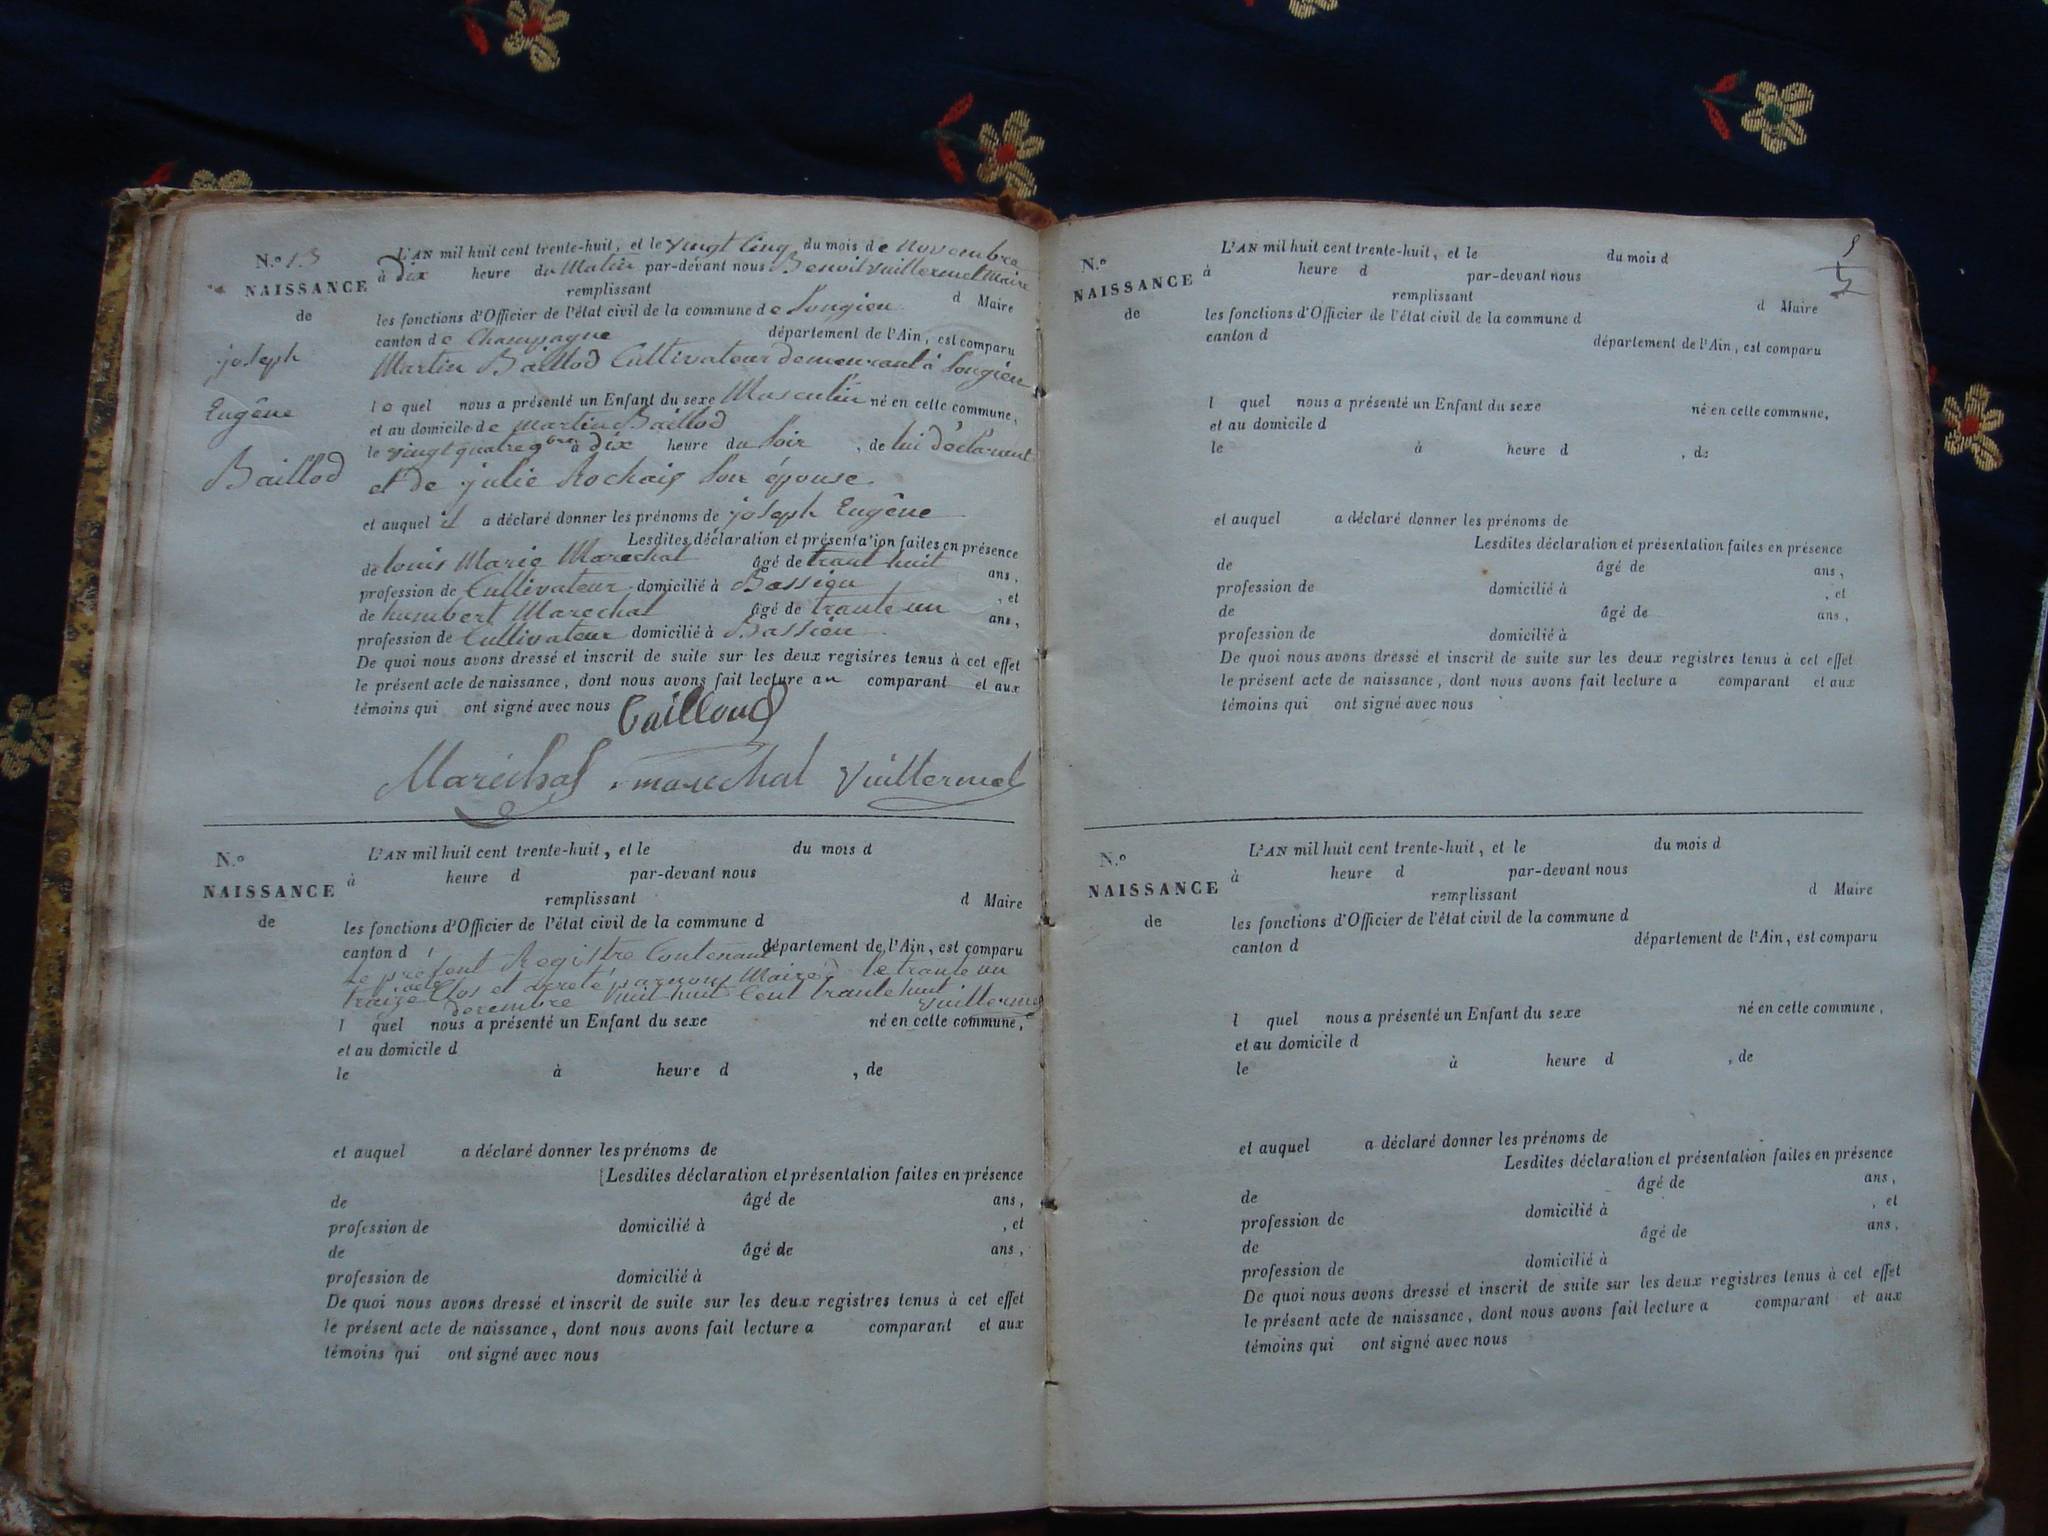 N.º 13
NAISSANCE
de
joseph
Eugêne
Baillod
L'AN mil huit cent trente-huit, et le vingt Cinq du mois de novembre
à Dix heure du Matin par-devant nous Benoit Vuillermet Maire
remplissant d Maire
les fonctions d'Officier de l'état civil de la commune de Songieu
canton de Champagne département de l'Ain, est comparu
Martin Baillod Cultivateur demeurant à Songieu
le quel nous a présenté un Enfant du sexe Masculin né en cette commune,
et au domicile de Martin Baillod
le vingt quatre 9bre à dix heure du Soir , de lui déclarent
et de julie Rochaix Son épouse
et auquel il a déclaré donner les prénoms de joseph Eugêne
Lesdites déclaration et présentation faites en présence
de louis Marie Marechal âgé de trant huit ans,
profession de Cultivateur domicilié à Bassieu , et
de humbert Marechal âgé de trante un ans,
profession de Cultivateur domicilié à Bassieu
De quoi nous avons dressé et inscrit de suite sur les deux registres tenus à cet effet
le présent acte de naissance, dont nous avons fait lecture au comparant et aux
témoins qui ont signé avec nous Bailloud
Maréchal marechal Vuillermet
N.º
NAISSANCE
de
L'AN mil huit cent trente-huit, et le du mois d
à heure d par-devant nous
remplissant d Maire
les fonctions d'Officier de l'état civil de la commune d
canton d département de l'Ain, est comparu
Le présent Registre Contenant
traize acte Clos et arreté par nous Maire le trante un
decembre Mil huit Cent trante huit Vuillermet
l quel nous a présenté un Enfant du sexe né en cette commune,
et au domicile d
le à heure d , de
et auquel a déclaré donner les prénoms de
Lesdites déclaration et présentation faites en présence
de âgé de ans,
profession de domicilié à , et
de âgé de ans,
profession de domicilié à
De quoi nous avons dressé et inscrit de suite sur les deux registres tenus à cet effet
le présent acte de naissance, dont nous avons fait lecture a comparant et aux
témoins qui ont signé avec nous
N.º
NAISSANCE
de
L'AN mil huit cent trente-huit, et le du mois d
à heure d par-devant nous
remplissant d Maire
les fonctions d'Officier de l'état civil de la commune d
canton d département de l'Ain, est comparu
l quel nous a présenté un Enfant du sexe né en cette commune,
et au domicile d
le à heure d , de
et auquel a déclaré donner les prénoms de
Lesdites déclaration et présentation faites en présence
de âgé de ans,
profession de domicilié à , et
de âgé de ans,
profession de domicilié à
De quoi nous avons dressé et inscrit de suite sur les deux registres tenus à cet effet
le présent acte de naissance, dont nous avons fait lecture a comparant et aux
témoins qui ont signé avec nous
N.º
NAISSANCE
de
L'AN mil huit cent trente-huit, et le du mois d
à heure d par-devant nous
remplissant d Maire
les fonctions d'Officier de l'état civil de la commune d
canton d département de l'Ain, est comparu
l quel nous a présenté un Enfant du sexe né en cette commune,
et au domicile d
le à heure d , de
et auquel a déclaré donner les prénoms de
Lesdites déclaration et présentation faites en présence
de âgé de ans,
profession de domicilié à , et
de âgé de ans,
profession de domicilié à
De quoi nous avons dressé et inscrit de suite sur les deux registres tenus à cet effet
le présent acte de naissance, dont nous avons fait lecture a comparant et aux
témoins qui ont signé avec nous